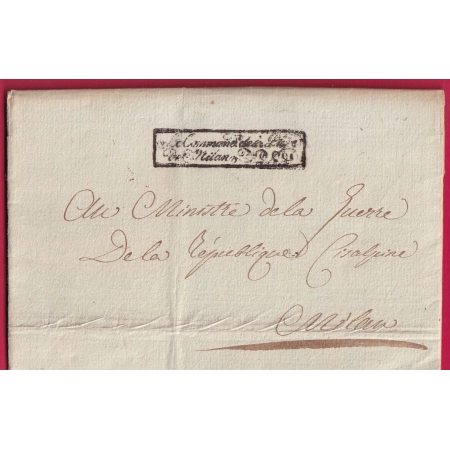 Le Command.
de Milan
Au Ministre de la Guerre
De la République Cisalpine
Milan